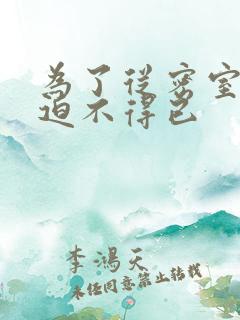 为了从密室
迫不得已
李鸿天
未经同意禁止转载